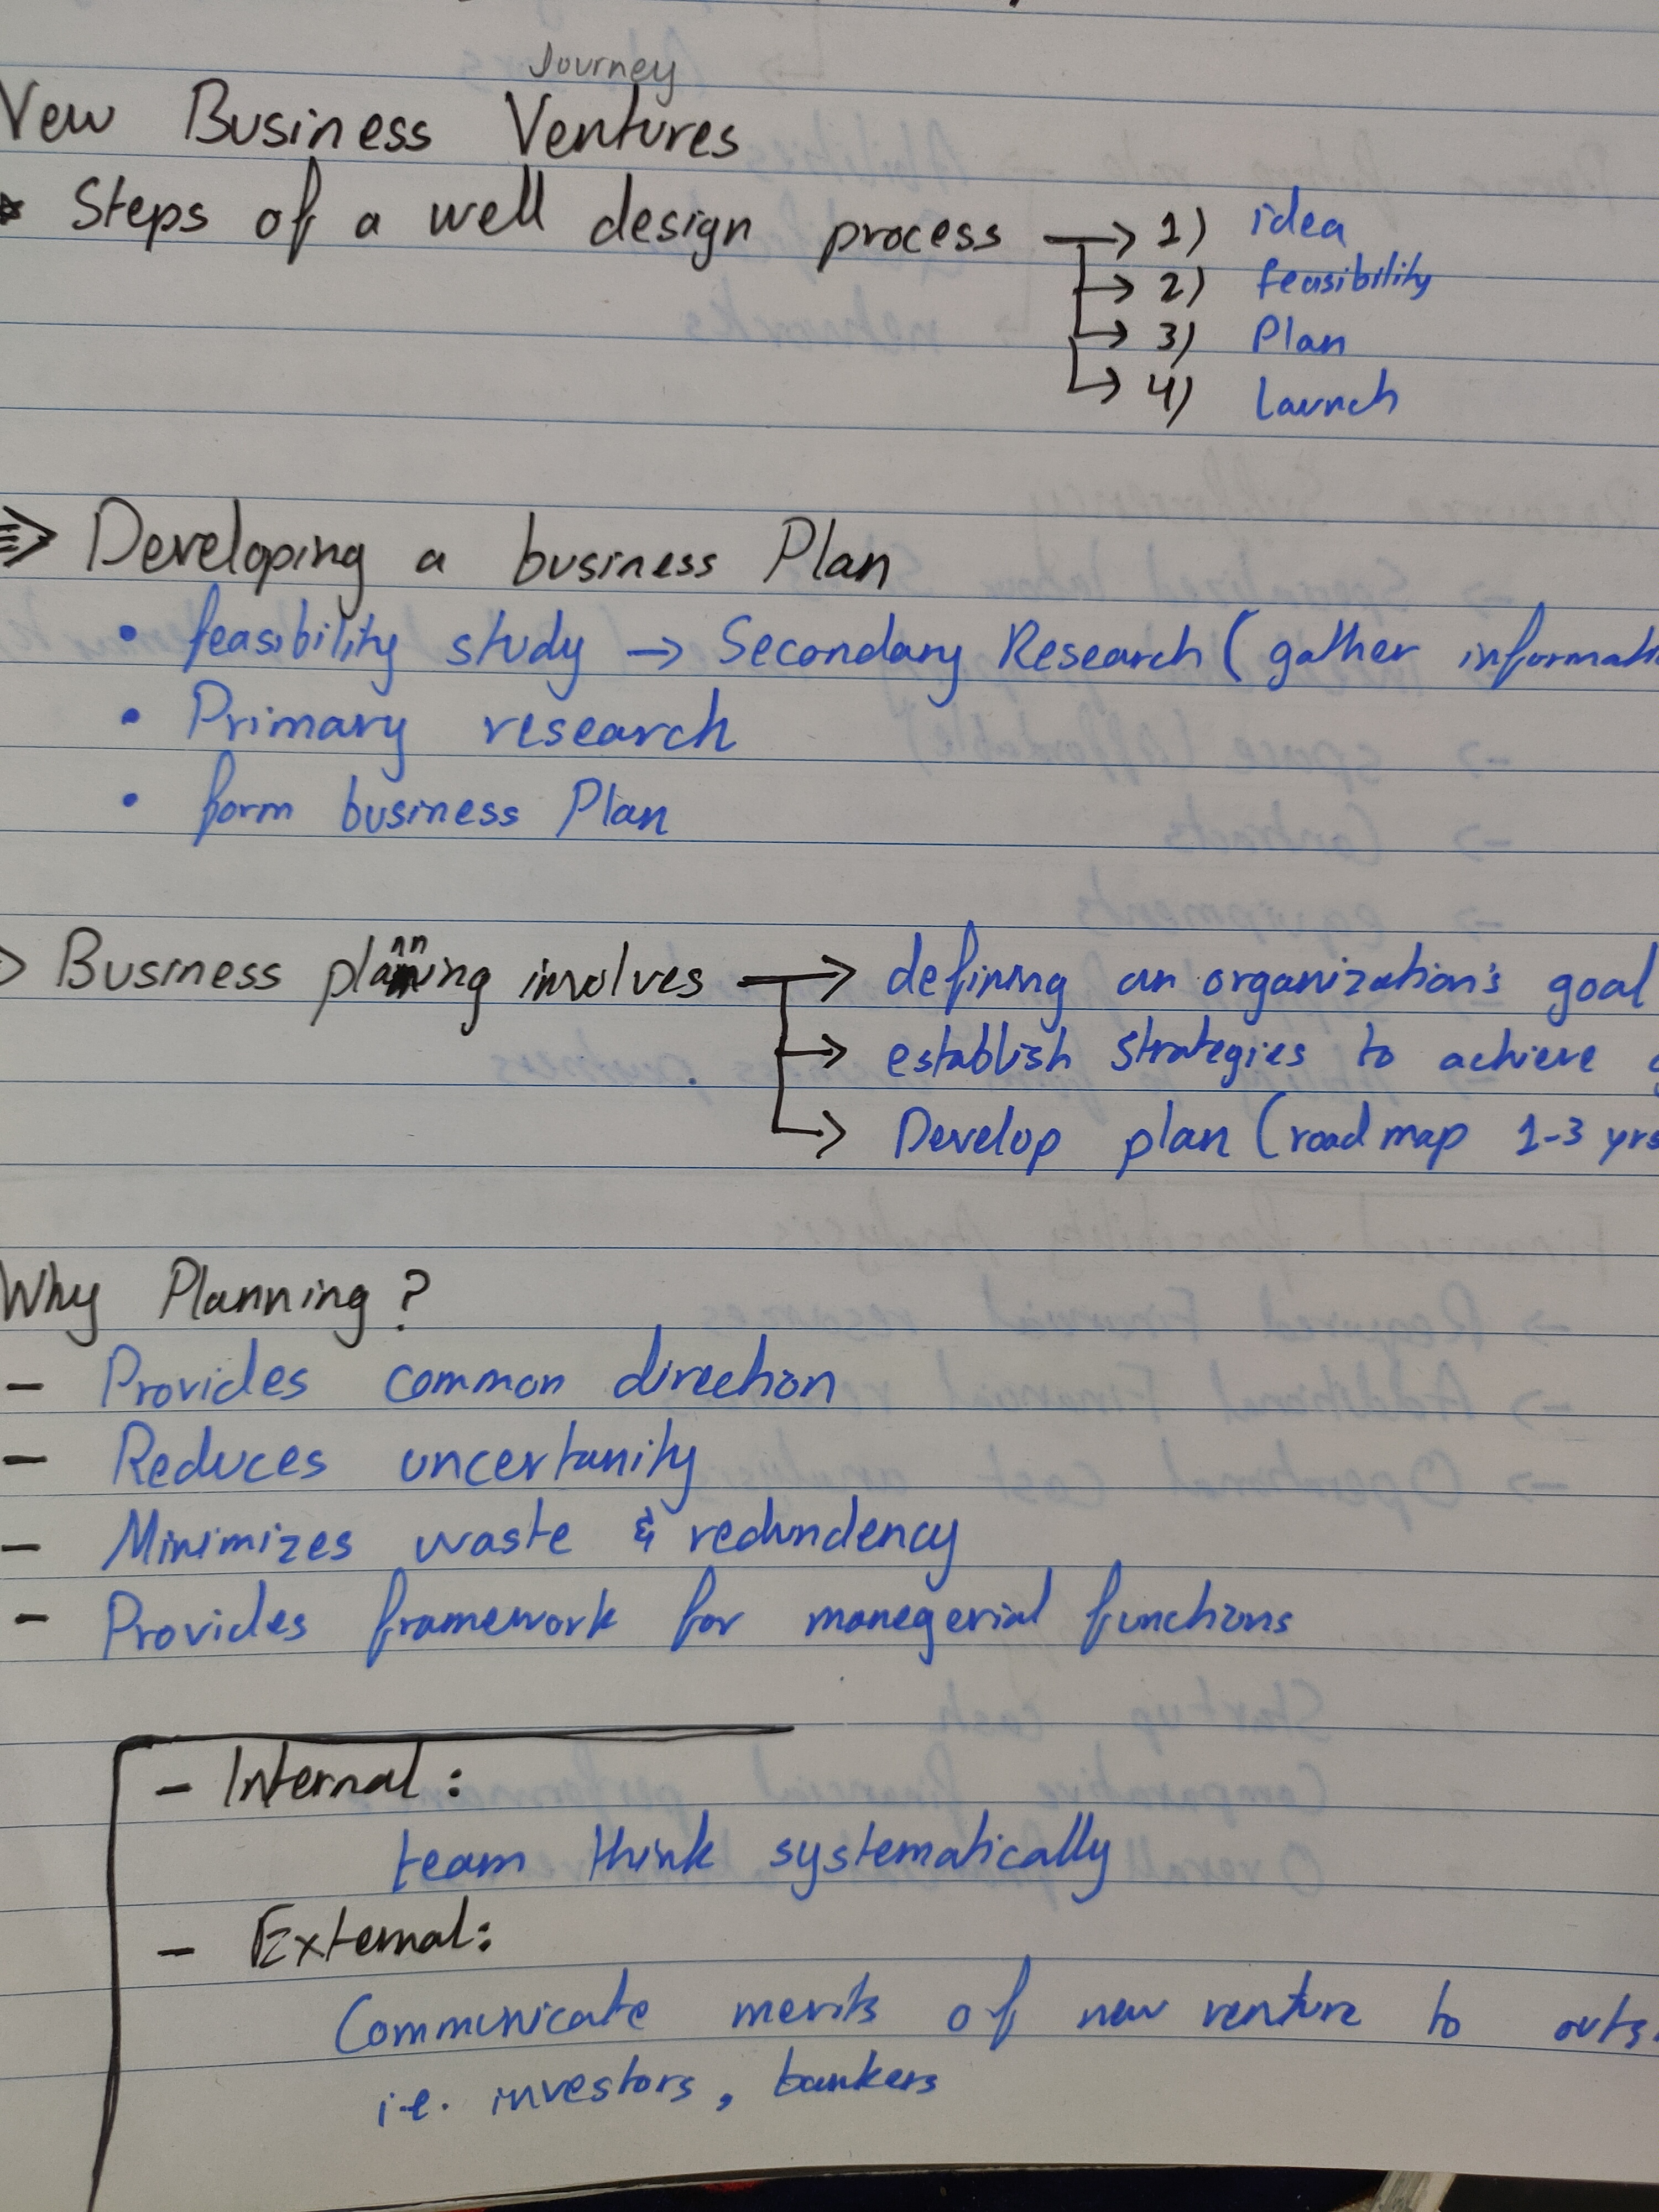 Journey
New Business Ventures
* Steps of a well design process → 1) idea
→ 2) feasibility
→ 3) Plan
→ 4) Launch
⇒ Developing a business Plan
• feasibility study → Secondary Research ( gather informati
• Primary research
• form business Plan
> Business planning involves → defining an organization's goal
→ establish strategies to achieve
→ Develop plan (road map 1-3 yrs
Why Planning?
- Provides common direction
- Reduces uncertanity
- Minimizes waste & redundency
- Provides framework for manegerial functions
- Internal:
team think systematically
- External:
Communicate merits of new venture to outs
i.e. investors, bankers